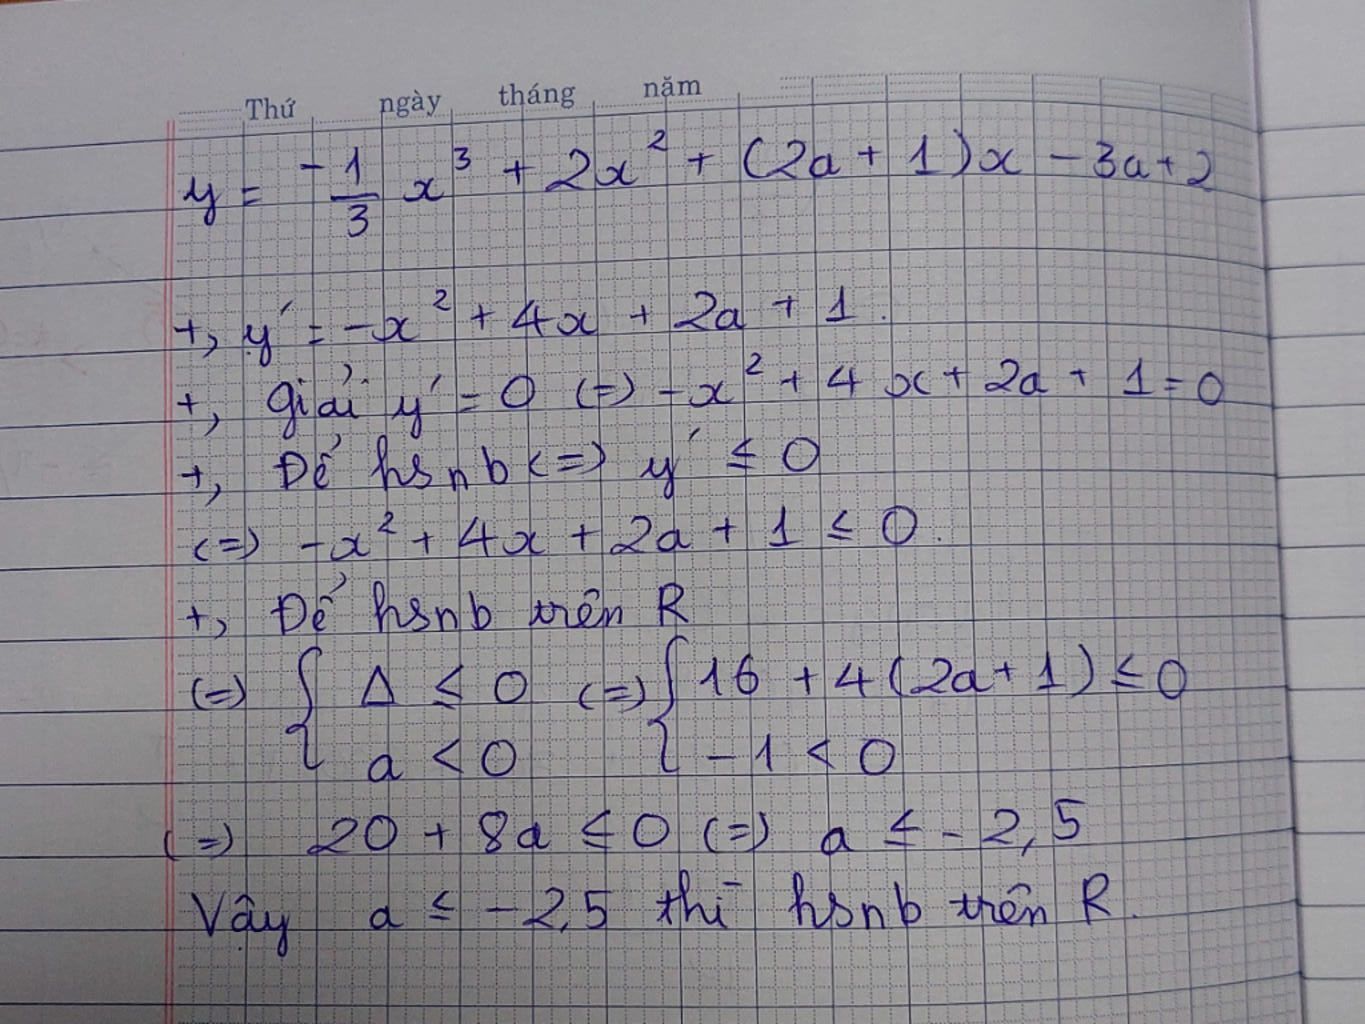 Thứ ngày tháng năm
y = -1/3 x³ + 2x² + (2a + 1)x - 3a + 2
+, y' = -x² + 4x + 2a + 1.
+, Giải y' = 0 (=) -x² + 4x + 2a + 1 = 0
+, Để hsnb (=) y' ≤ 0
(=) -x² + 4x + 2a + 1 ≤ 0.
+, Để hsnb trên R
(=) { Δ ≤ 0 (=) { 16 + 4(2a + 1) ≤ 0
a < 0 -1 < 0
(=) 20 + 8a ≤ 0 (=) a ≤ -2,5
Vậy a ≤ -2,5 thì hsnb trên R.